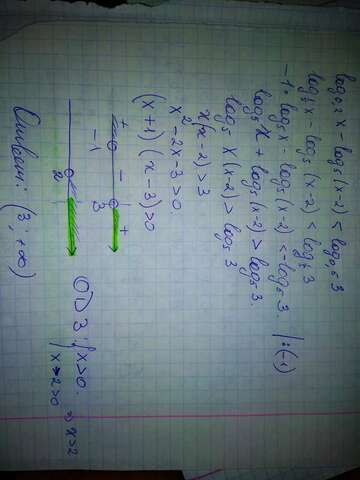 log₀,₂ x - log₅ (x-2) < log₀,₂ 3
log_{1/5} x - log₅ (x-2) < log_{1/5} 3
-1·log₅ x - log₅ (x-2) < -log₅ 3. |:(-1)
log₅ x + log₅ (x-2) > log₅ 3.
log₅ x(x-2) > log₅ 3
x(x-2) > 3
x²-2x-3>0.
(x+1) (x-3)>0
+ - +
-1 3
2
ОДЗ: {x>0.
{x-2>0 => x>2
Ответ: (3; +∞)